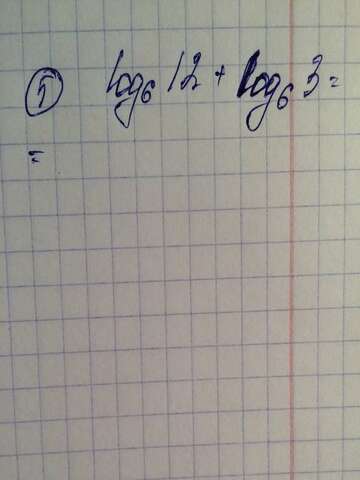 5 log₆ 12 + log₆ 3 =
=